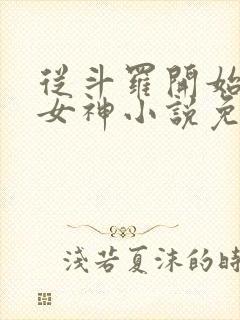 從斗羅開始
女神小說免
淺若夏沫的時